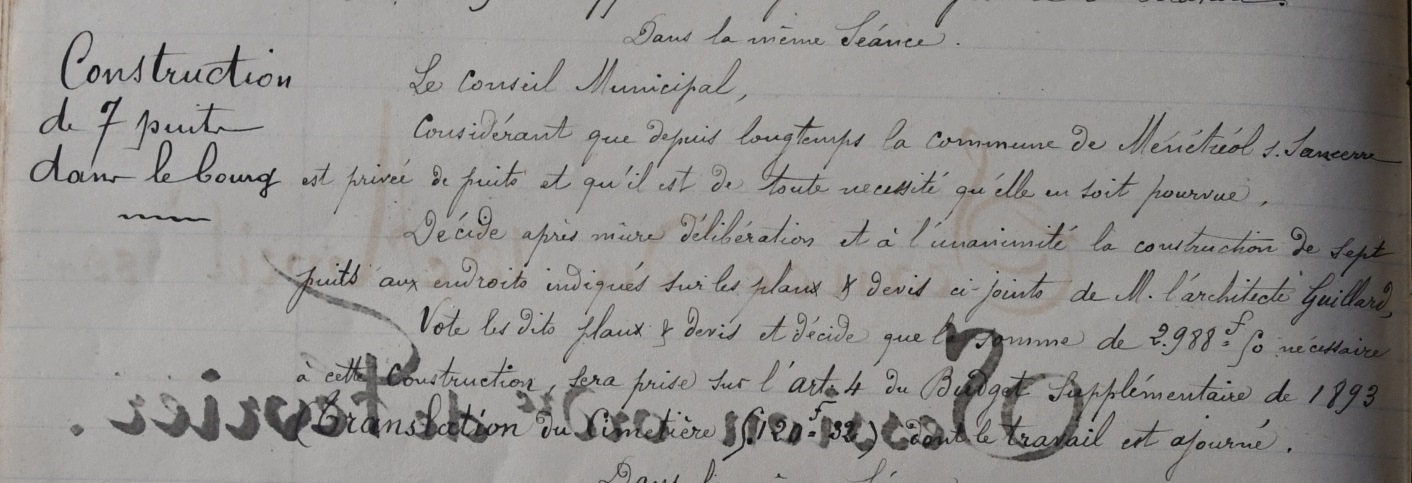 Dans la même Séance.
Construction
de 7 puits
dans le bourg
Le Conseil Municipal,
Considérant que depuis longtemps la commune de Ménétréol s. Sancerre
est privée de puits et qu'il est de toute necessité qu'elle en soit pourvue,
Décide après mûre délibération et à l'unanimité la construction de sept
puits aux endroits indiqués sur les plans & devis ci-joints de M. l'architecte Guillard,
Vote les dits plans & devis et décide que la somme de 2.988 f = 50 nécessaire
à cette Construction, sera prise sur l'art. 4 du Budget Supplémentaire de 1893
(Translation du Cimetière 5.120 f = 32) dont le travail est ajourné.
Dans la même Séance